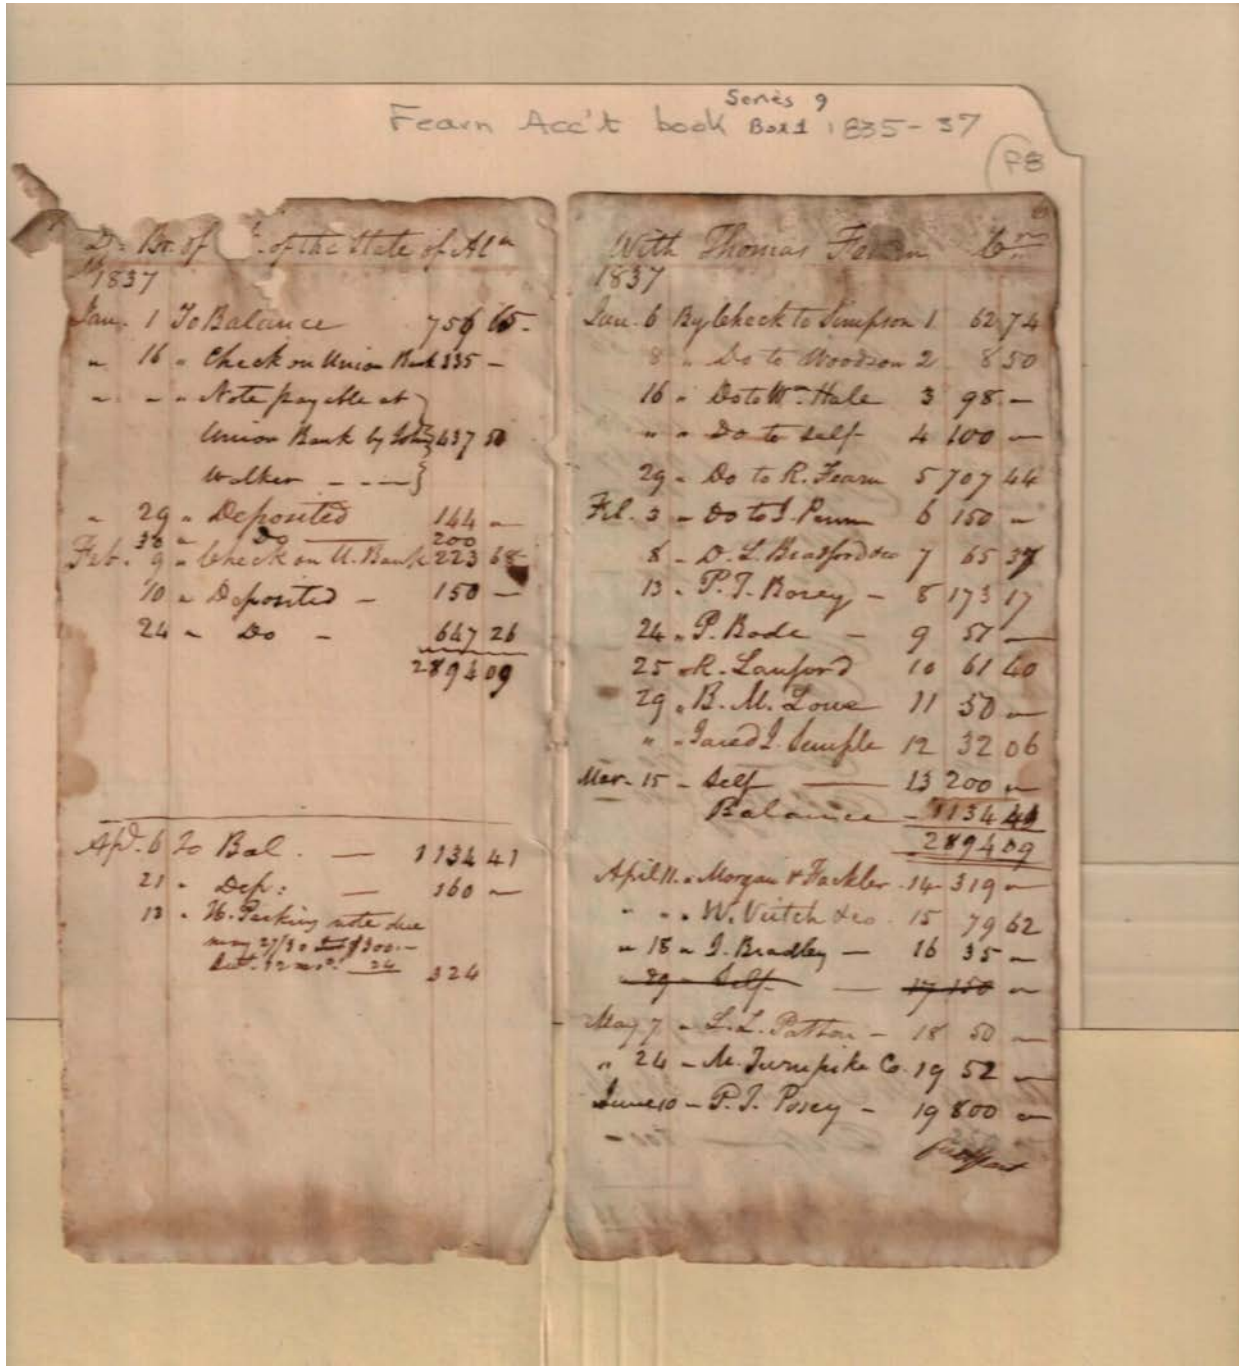 Series 9
Fearn Acc't book Box 1 1835-37
P8
Dr. Br. of of the State of Ala
1837
Jan. 1 To Balance 756 65.
" 16 " Check on Union Bank 335 -
" - " Note payable at
Union Bank by John 437 50
Walker - - -
" 29 " Deposited 144 -
30 " Do 200
Feb. 9 " Check on U. Bank 223 68
10 " Deposited - 150 -
24 " Do - 647 26
2894 09
Apl. 6 To Bal. - 1134 41
21 " Dep: - 160 -
13 " note due
may 27/30 $300.-
12 mos. 24 324
With Thomas Fearn Cr.
1837
Jan. 6 By Check to Simpson 1 62 74
8 " Do to Woodson 2 8 50
16 " Do to Wm Hale 3 98 -
" " Do to self 4 100 -
29 " Do to R. Fearn 5 707 44
Feb. 3 " Do to 6 150 -
8 - D. L. Bradford &co 7 65 37
13 " P. T. Posey - 8 173 17
24 " P. Bode - 9 57 -
25 " R. Lanford 10 61 40
29 " B. M. Lowe 11 50 -
" " Jared J. Semple 12 32 06
Mar. 15 - Self - 13 200 -
Balance - 1134 41
2894 09
April 11 " Morgan & Fackler 14 319 -
" " " W. Veitch &co 15 79 62
" 18 " J. Bradley - 16 35 -
" 29 - Self - 17 150 -
May 7 " L. L. Patton - 18 50 -
" 24 - M. Turnpike Co. 19 52 -
June 10 - P. T. Posey - 19 800 -